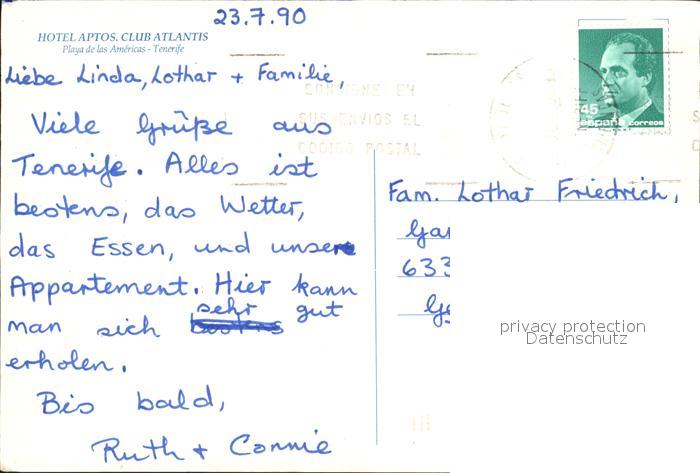 23.7.90
HOTEL APTOS. CLUB ATLANTIS
Playa de las Américas - Tenerife
Liebe Linda, Lothar + Familie,
Viele Grüße aus
Tenerife. Alles ist
bestens, das Wetter,
das Essen, und unsere
Appartement. Hier kann
man sich bestens sehr gut
erholen.
Bis bald,
Ruth + Connie
CONSIGNE EN
SUS ENVIOS EL
CODIGO POSTAL
45
españa correos
Fam. Lothar Friedrich,
633
privacy protection
Datenschutz